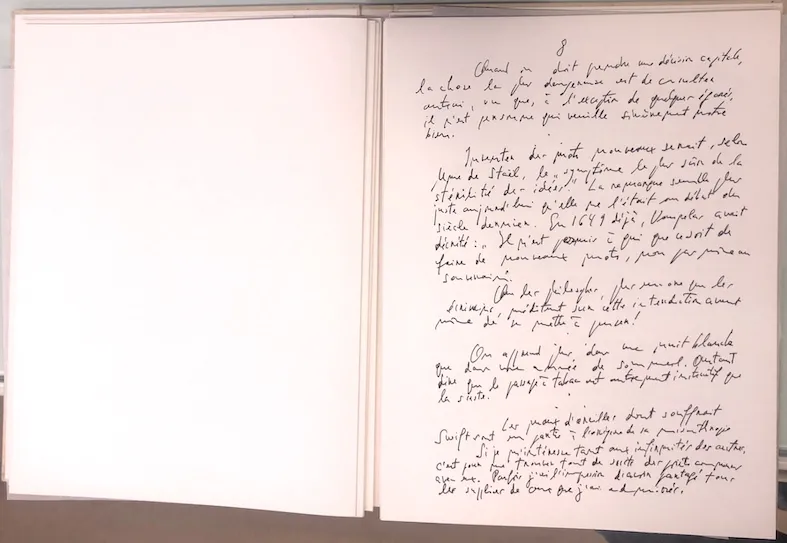 8
Quand on doit prendre une décision capitale,
la chose la plus dangereuse est de consulter
autrui, vu que, à l'exception de quelques égarés,
il n'est personne qui veuille sincèrement notre
bien.
Inventer des mots nouveaux serait, selon
Mme de Staël, le „symptôme le plus sûr de la
stérilité des idées." La remarque semble plus
juste aujourd'hui qu'elle ne l'était au début du
siècle dernier. En 1649 déjà, Vaugelas avait
décrété : „Il n'est permis à qui que ce soit de
faire de nouveaux mots, non pas même au
souverain."
Que les philosophes, plus encore que les
écrivains, méditent sur cette interdiction avant
même de se mettre à penser!
On apprend plus dans une nuit blanche
que dans une année de sommeil. Autant
dire que le passage à tabac est autrement instructif que
la sieste.
Les maux d'oreilles dont souffrait
Swift sont en partie à l'origine de sa misanthropie
Si je m'intéresse tant aux infirmités des autres,
c'est pour me trouver tout de suite des points communs
avec eux. Parfois j'ai l'impression d'avoir partagé tous
les supplices de ceux que j'ai admirés.